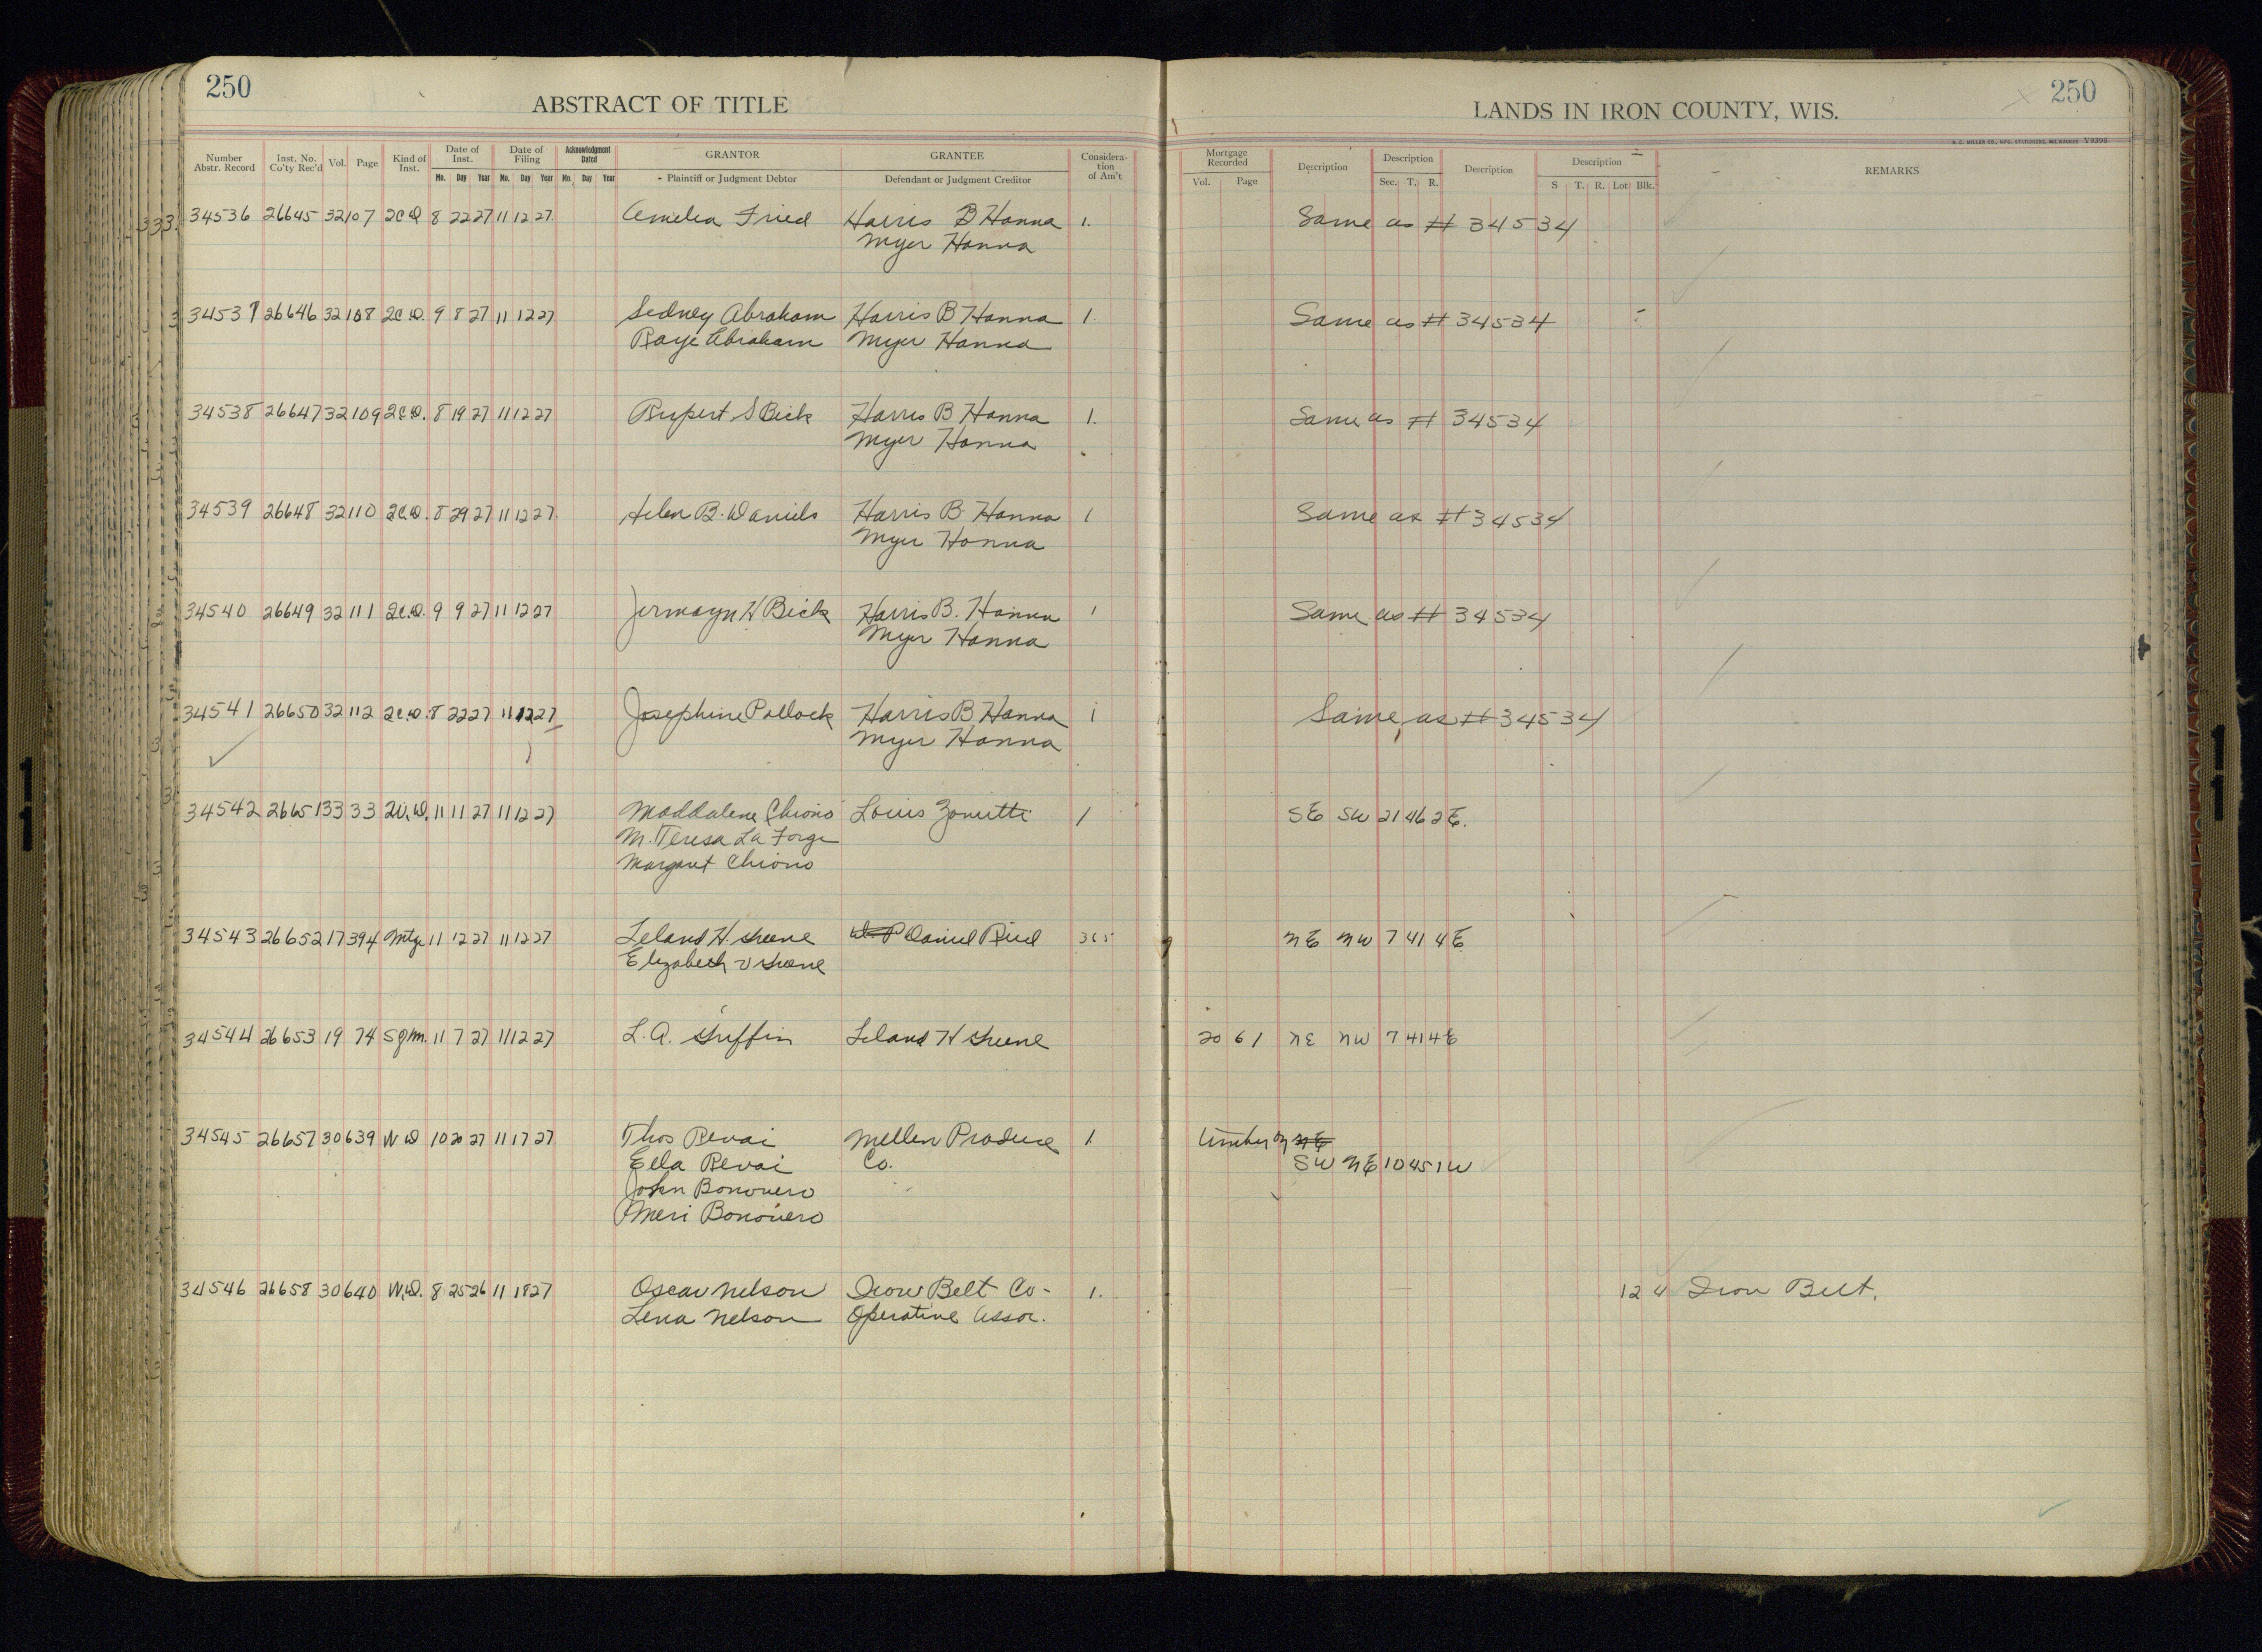 250
ABSTRACT OF TITLE
LANDS IN IRON COUNTY, WIS.
250
H. C. MILLER CO., MFG. STATIONERS, MILWAUKEE V9395
Number Abstr. Record Inst. No. Co'ty Rec'd Vol. Page Kind of Inst. Date of Inst. Mo. Day Year Date of Filing Mo. Day Year Acknowledgment Dated Mo. Day Year GRANTOR Plaintiff or Judgment Debtor GRANTEE Defendant or Judgment Creditor Consideration of Am't Mortgage Recorded Vol. Page Description Description Sec. T. R. Description Description S T. R. Lot Blk. REMARKS
34536 26645 32 107 2C.D 8 22 27 11 12 27 Amelia Fried Harris B Hanna 1. Same as # 34534
Myer Hanna
34537 26646 32 108 2C.D. 9 8 27 11 12 27 Sidney Abraham Harris B Hanna 1. Same as # 34534
Raye Abraham Myer Hanna
34538 26647 32 109 2C.D. 8 19 27 11 12 27 Rupert S Bick Harris B Hanna 1. Same as # 34534
Myer Hanna
34539 26648 32 110 2C.D. 8 29 27 11 12 27 Helen B. Daniels Harris B. Hanna 1 Same as # 34534
Myer Hanna
34540 26649 32 111 2C.D. 9 9 27 11 12 27 Jermayn H Bick Harris B. Hanna 1 Same as # 34534
Myer Hanna
34541 26650 32 112 2C.D. 8 22 27 11 12 27 Josephine Pollock Harris B Hanna 1 Same as # 34534
Myer Hanna
34542 26651 33 33 11 11 27 11 12 27 Maddalene Chiono Louis Zonutti 1 SE SW 21 46 2E.
M. Teresa La Forge
Margaret Chiono
34543 26652 17 394 Mtge 11 12 27 11 12 27 Leland H. Greene Daniel Rue 365 NE NW 7 41 4E
Elizabeth V Greene
34544 26653 19 74 11 7 27 11 12 27 L. A. Griffin Leland H Greene 20 61 NE NW 7 41 4E
34545 26657 30 639 W D 10 20 27 11 17 27 Thos Revai Mellen Produce 1 timber on NE
Ella Revai Co. SW NE 10 45 1W
John Bonovero
Meri Bonovero
34546 26658 30 640 W.D. 8 25 26 11 18 27 Oscar Nelson Iron Belt Co- 1. 12 4 Iron Belt.
Lena Nelson Operative Assoc.